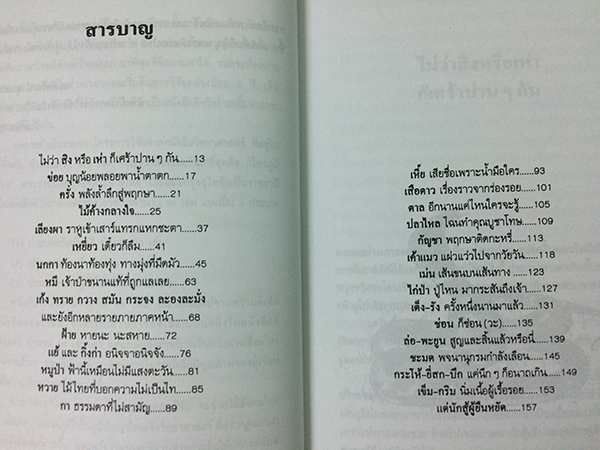 สารบาญ
ไม่ว่า สิง หรือ เห่า ก็เศร้าปาน ๆ กัน.....13
ข่อย บุญน้อยพลอยพาน้ำตาตก.....17
ครั่ง พลังล้ำลึกสู่พฤกษา.....21
ไม้ค้างกลางใจ.....25
เลียงผา ราหูเข้าเสาร์แทรกแหกชะตา.....37
เหยี่ยว เดี๋ยวก็ลืม.....41
นกกา ท้องนาท้องทุ่ง ทางมุ่งที่มืดมัว.....45
หมี เจ้าป่าขนานแท้ที่ถูกแลเลย.....63
เก้ง ทราย กวาง สมัน กระจง ละองละมั่ง
และยังอีกหลายรายภายภาคหน้า.....68
ฝ้าย หายนะ นะสหาย.....72
แย้ และ กิ้งก่า อนิจจาอนิจจัง.....76
หมูป่า ฟ้านี้เหมือนไม่มีแสงตะวัน.....81
หวาย ไม้ไทยที่บอกความไม่เป็นไท.....85
กา ธรรมดาที่ไม่สามัญ.....89
เหี้ย เสียชื่อเพราะน้ำมือใคร.....93
เสือดาว เรื่องราวจากร่องรอย.....101
ตาล อีกนานแค่ไหนใครจะรู้.....105
ปลาไหล ไฉนทำคุณบูชาโทษ.....109
กัญชา พฤกษาติดกะหรี่.....113
เค้าแมว แผ่วแว่วไปจากวัยวัน.....118
เม่น เส้นขนบนเส้นทาง.....123
ไก่ป่า ปู่ไหน มากระสันถึงเจ้า.....127
เต็ง-รัง ครั้งหนึ่งนานมาแล้ว.....131
ช่อน ก็ช่อน (วะ).....135
ล่อ-พะยูน สูญและสิ้นแล้วหรือนี่.....139
ชะมด พจนานุกรมกำลังเลือน.....145
กระโห้-ยี่สก-บึก แค่นึก ๆ ก็อนาถเกิน.....149
เข็ม-กริม นิ่มเนื้อผู้เรื้อรอย.....153
แด่นักสู้ผู้ยืนหยัด.....157